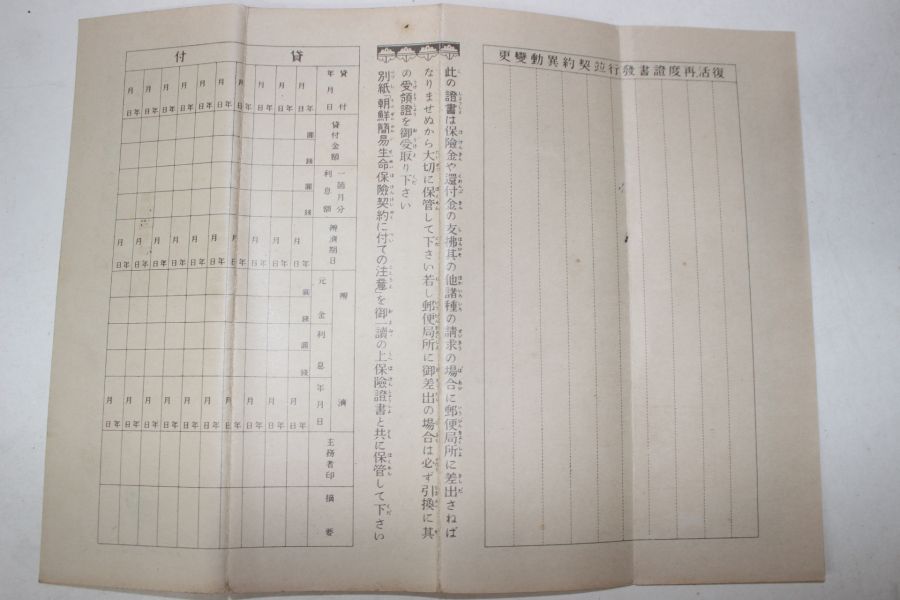 復活再度證書發行竝契約異動變更
此の證書は保險金や還付金の支拂其の他諸種の請求の場合に郵便局所に差出さねば
なりませぬから大切に保管して下さい若し郵便局所に御差出の場合は必ず引換に其
の受領證を御受取り下さい
別紙「朝鮮簡易生命保險契約に付ての注意」を御一讀の上保險證書と共に保管して下さい
貸付
貸付年月日
年月日
年月日
年月日
年月日
年月日
年月日
年月日
年月日
年月日
年月日
貸付金額
圓錢
一箇月分利息額
圓錢
辨濟期日
年月日
年月日
年月日
年月日
年月日
年月日
年月日
年月日
年月日
年月日
辨濟
元金
圓錢
利息
圓錢
年月日
年月日
年月日
年月日
年月日
年月日
年月日
年月日
年月日
年月日
年月日
主務者印
摘要